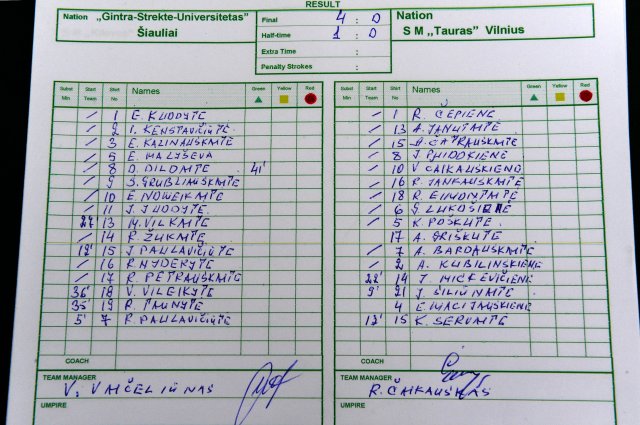 RESULT
Nation „Gintra-Strekte-Universitetas" Šiauliai
Final 4 : 0
Half-time 1 : 0
Extra Time :
Penalty Strokes :
Nation S M „Tauras" Vilnius
Subst Min Start Team Start No Names Green Yellow Red
/ 1 E. KUODYTĖ
/ 2 I. KENSTAVIČIŪTĖ
/ 3 E. KALINAUSKAITĖ
/ 5 E. MALYŠEVA
/ 8 D. DILOMTĖ 41'
/ 9 S. GRUBLIAUSKAITĖ
/ 10 E. NOWEIKAITĖ
/ 11 J. JUODYTĖ
27' 13 M. VILKAITĖ
/ 14 R. ŽUKAITĖ
12' 15 J. PAULAVIČIŪTĖ
/ 16 R. NYDERYTĖ
/ 17 R. PETRAUSKAITĖ
36' 18 V. VILEIKYTĖ
35' 19 R.
5' 7 R. PAULAVIČIŪTĖ
COACH
TEAM MANAGER V. VAIČELIŪNAS
UMPIRE
Subst Min Start Team Start No Names Green Yellow Red
/ 1 R. ČEPIENĖ
/ 13 A. JANUTAITĖ
/ 15
/ 8 J.
/ 10 V. ČAIKAUSKIENĖ
/ 16 R. JANKAUSKAITĖ
/ 18 R. EIMONTAITĖ
/ 6 G. LUKOŠIENĖ
/ 5 K. POŠKUTĖ
17 A. GRIŠKUTĖ
7 A. BARDAUSKAITĖ
/ 2 A. KUBILINSKIENĖ
22' 14 J. MICKEVIČIENĖ
9' 21 J. ŠILIŪNAITĖ
4 E. MACIJAUSKIENĖ
12' 15 K. SERVAITĖ
COACH
TEAM MANAGER R. ČAIKAUSKAS
UMPIRE